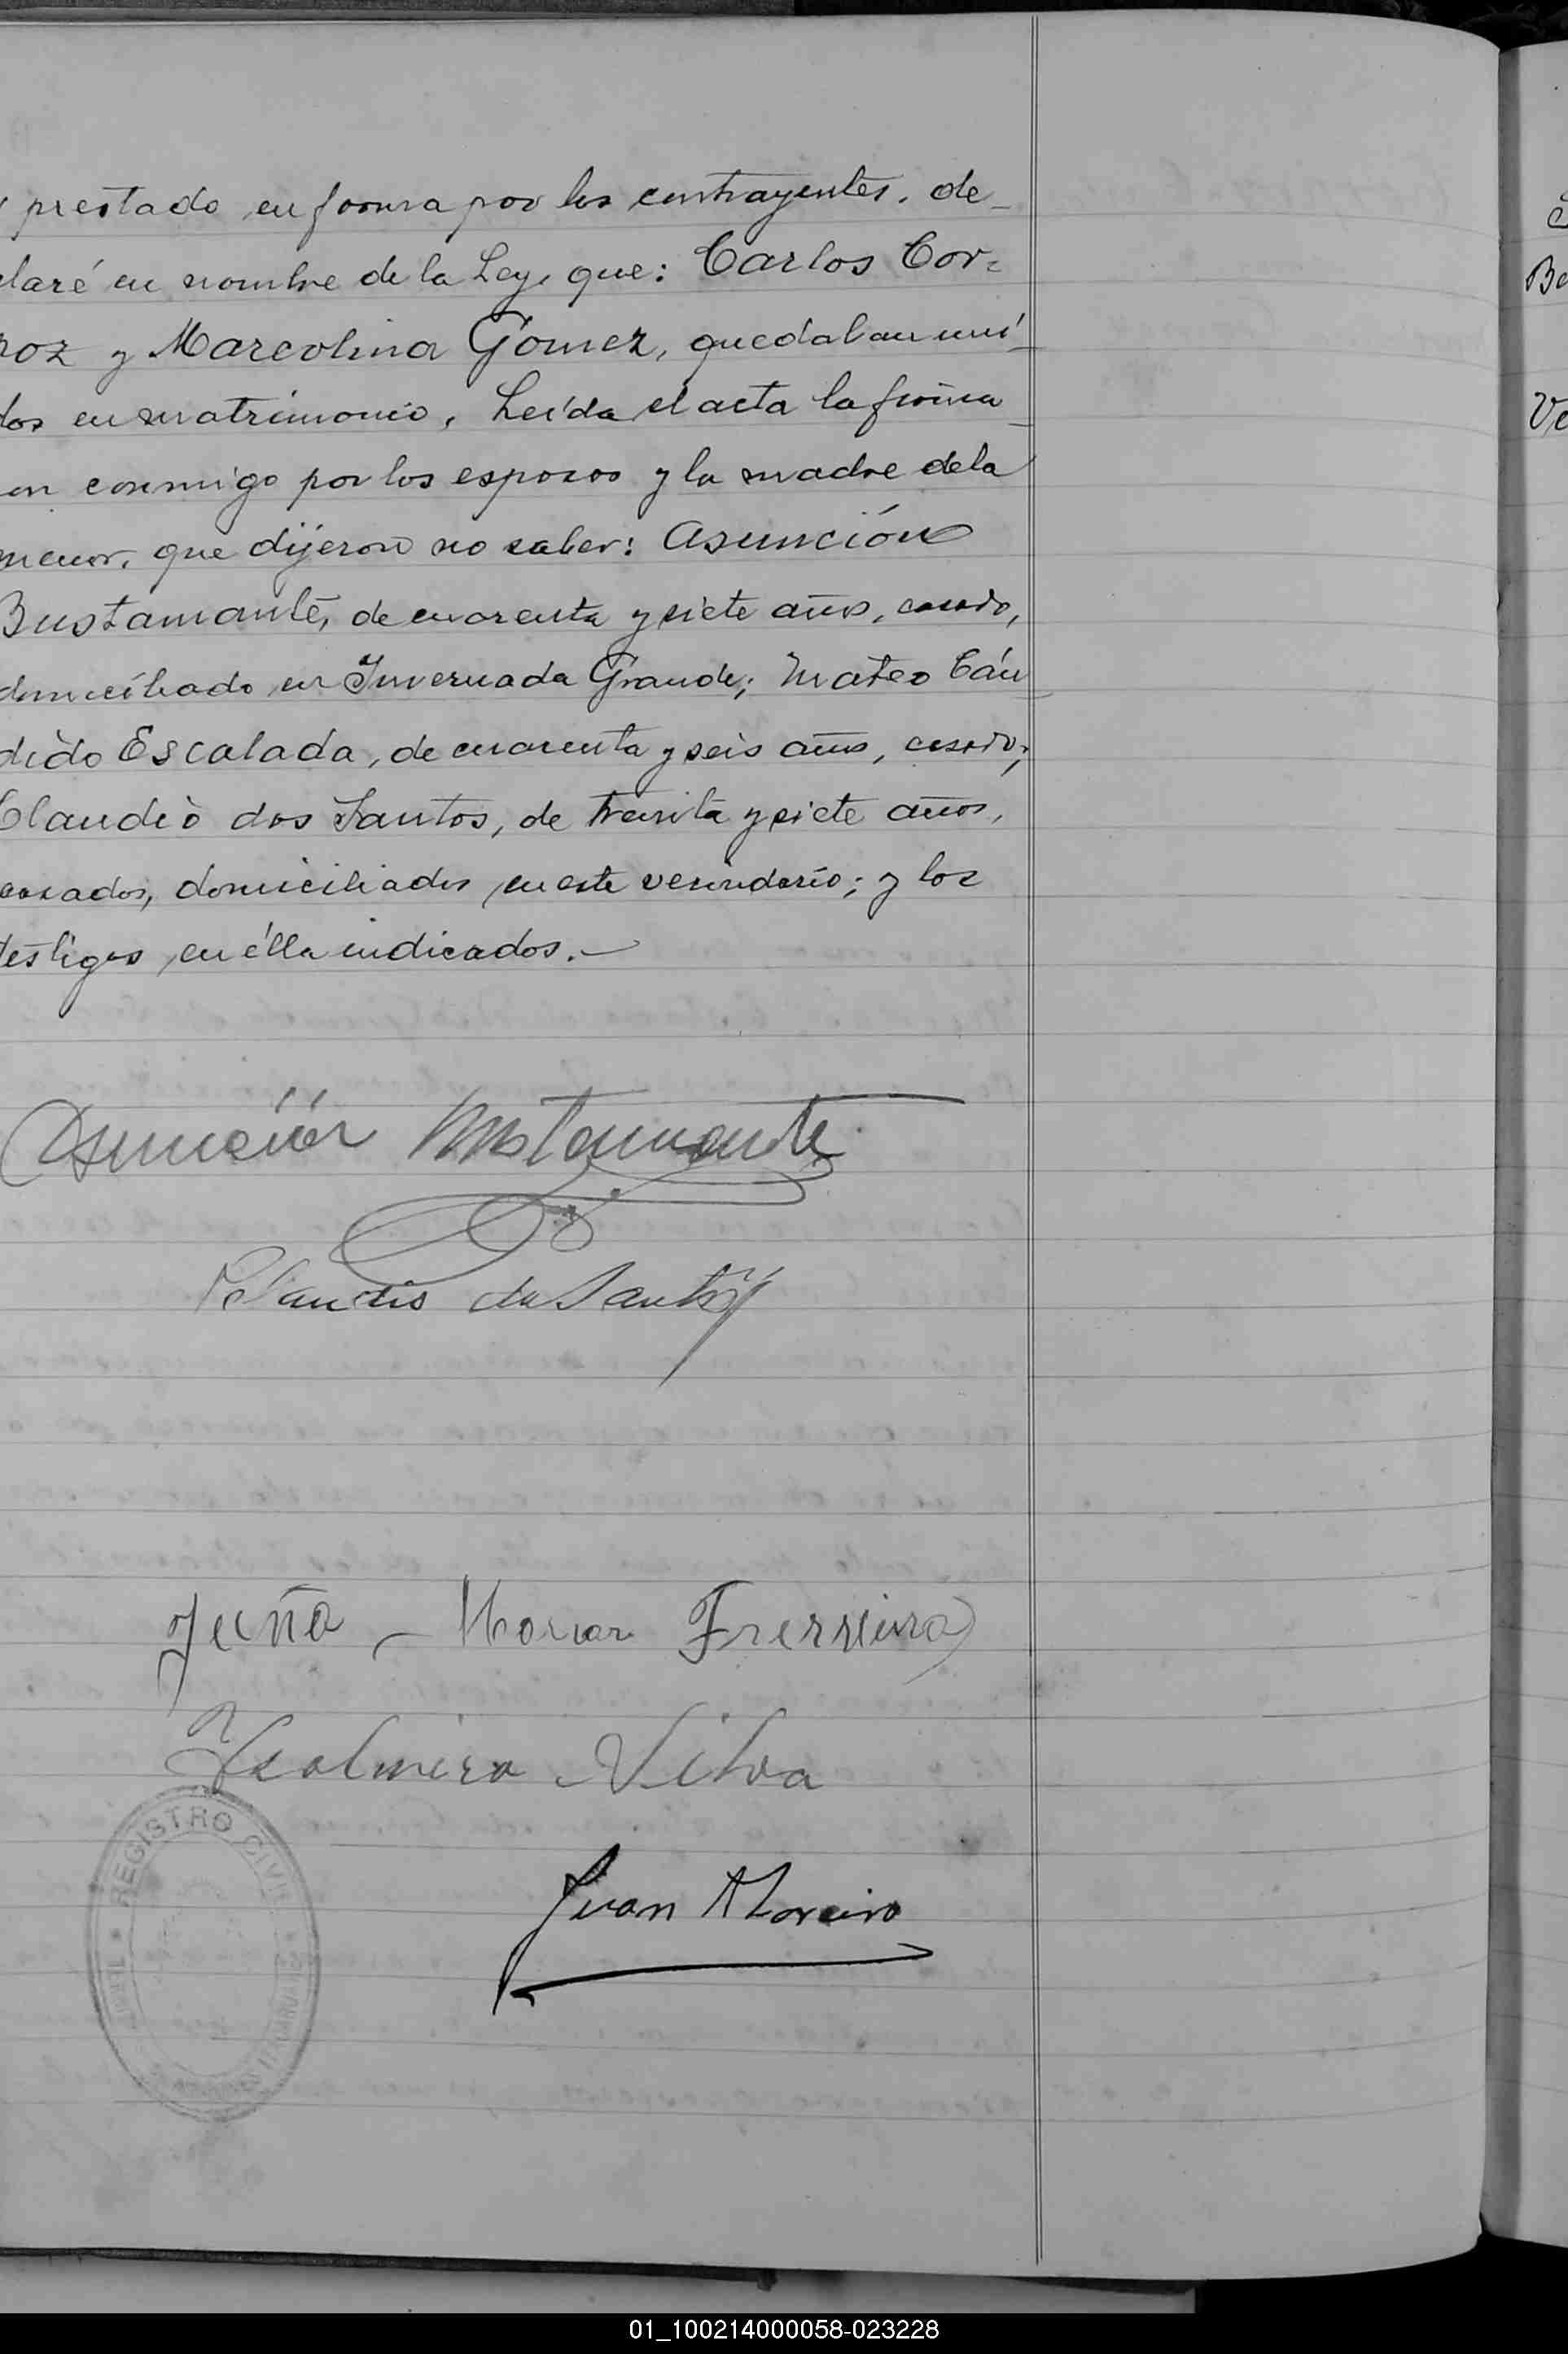 prestado en forma por los contrayentes, de-
claré en nombre de la Ley, que: Carlos Cor=
roz y Marcolina Gómez, quedaban uni-
dos en matrimonio. Leída el acta la firma-
on conmigo por los esposos y la madre de la
menor, que dijeron no saber: Asunción
Bustamante, de cuarenta y siete años, casado,
domiciliado en Invernada Grande; Mateo Cán-
dido Escalada, de cuarenta y seis años, casado;
Claudio dos Santos, de treinta y siete años,
casados, domiciliados en este vecindario; y los
testigos en élla indicados.—
Asunción Bustamante
Claudio do Santos
Ferreira
Ysolmira Silva
Juan Moreira
REGISTRO CIVIL
01_100214000058-023228
Be
Ve